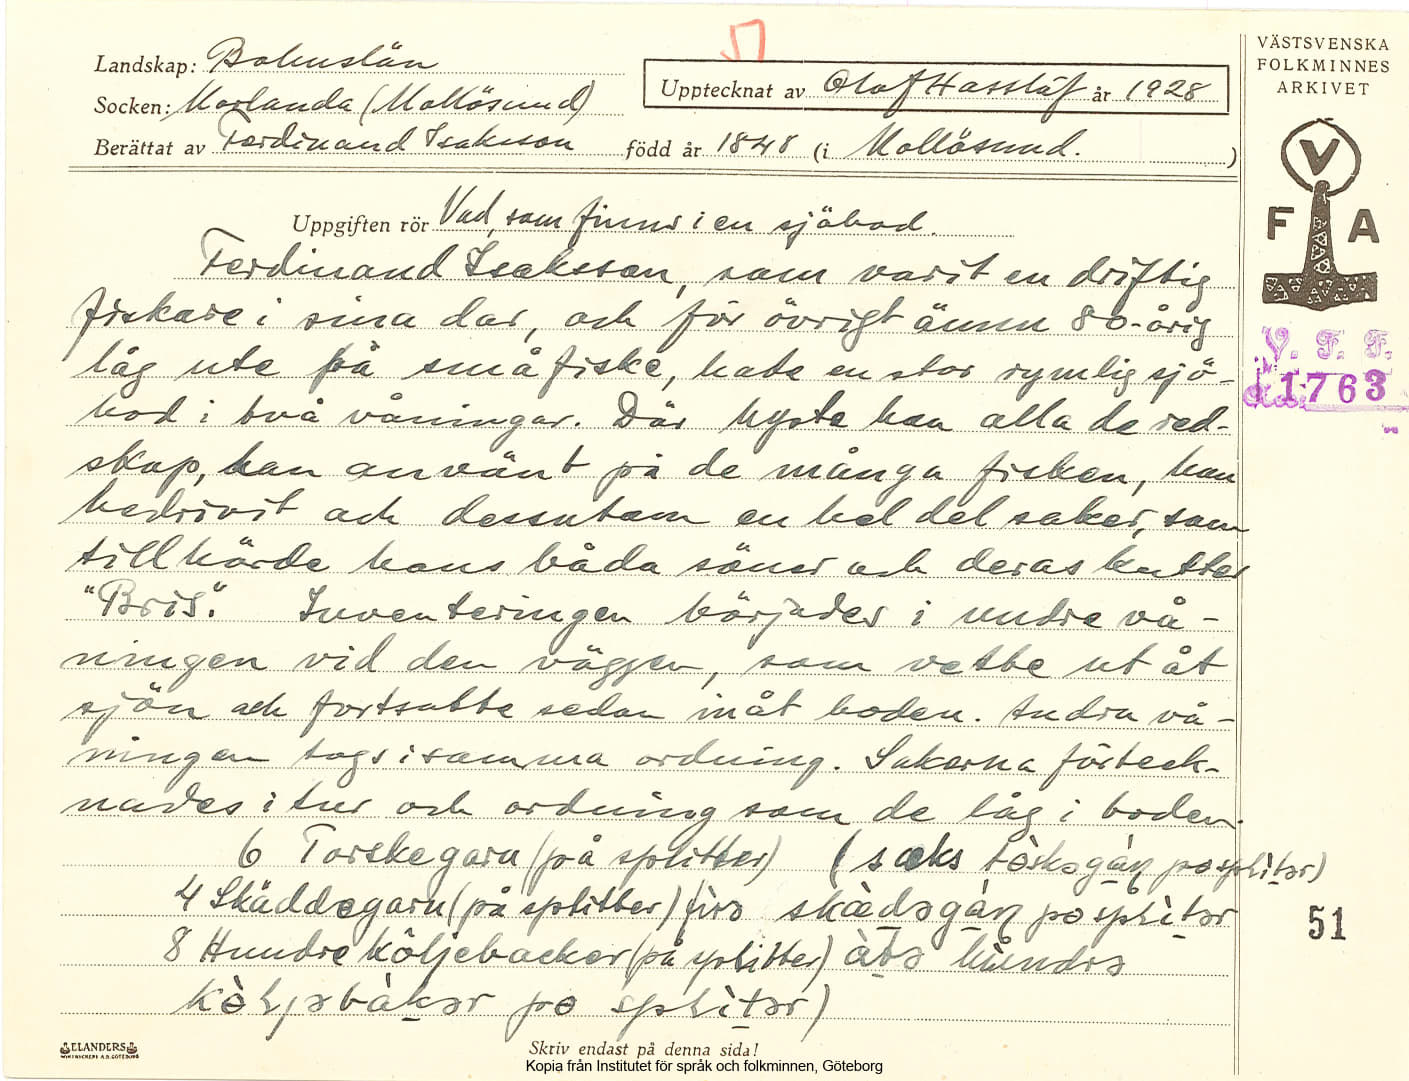 Landskap: Bohuslän
Socken: Morlanda (Mollösund)
Upptecknat av Olof Hasslöf år 1928
Berättat av Ferdinand Isaksson född år 1848 (i Mollösund. )
VÄSTSVENSKA
FOLKMINNES
ARKIVET
V
F A
V. F. F.
1763
Uppgiften rör Vad, som finns i en sjöbod.
Ferdinand Isaksson, som varit en driftig
fiskare i sina dar, och för övrigt ännu 80-årig
låg ute på småfiske, hade en stor rymlig sjö-
bod i två våningar. Där hyste han alla de red-
skap, han använt på de många fisken, han
bedrivit och dessutom en hel del saker, som
tillhörde hans båda söner och deras kutter
"Bris". Inventeringen börjades i undre vå-
ningen vid den väggen, som vette ut åt
sjön och fortsatte sedan inåt boden. Andra vå-
ningen togs i samma ordning. Sakerna förteck-
nades i tur och ordning som de låg i boden.
6 Torskegarn (på splitter) (sæks tòskəgáɳ po splìtər)
4 Skäddegarn (på splitter) firə skæ̀dəgáɳ po splìtər
8 Hundre köljebacker (på splitter) àtə hùndrə
kòljəbàkər po splìtər)
51
ELANDERS
Skriv endast på denna sida!
Kopia från Institutet för språk och folkminnen, Göteborg